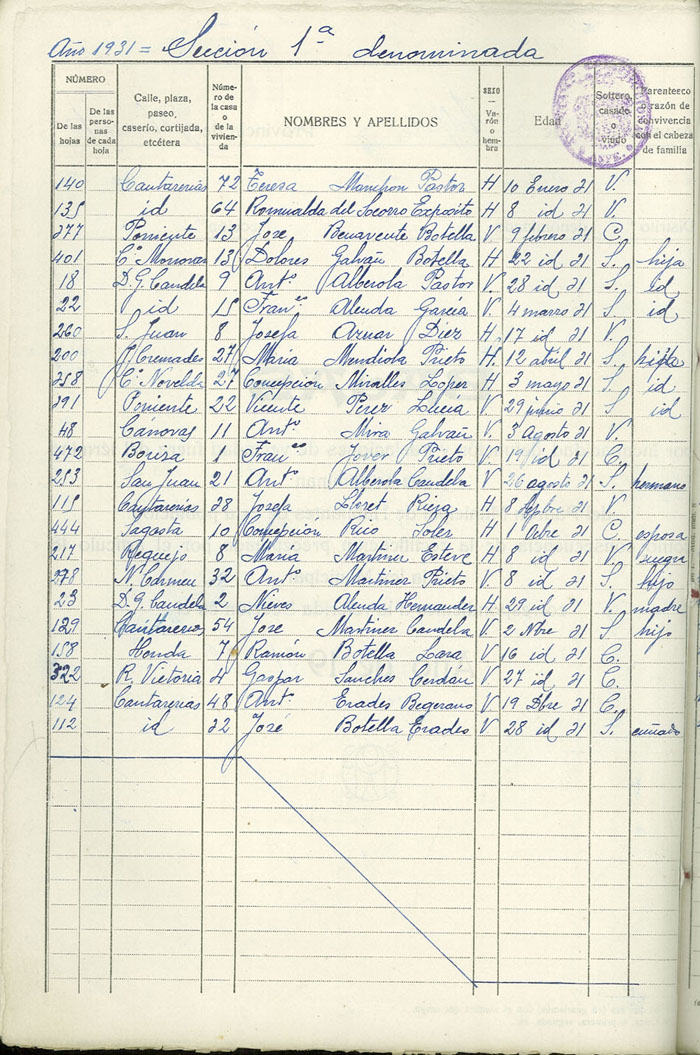 Año 1931 = Sección 1ª denominada
NÚMERO
De las hojas
De las personas de cada hoja
Calle, plaza, paseo, caserío, cortijada, etcétera
Número de la casa o de la vivienda
NOMBRES Y APELLIDOS
SEXO — Varón o hembra
Edad
Soltero, casado o viudo
Parentesco o razón de convivencia con el cabeza de familia
140 Cantarerias 72 Teresa Pastor H 10 Enero 21 V.
135 id 64 Romualda del Socorro Exposito H 8 id 21 V.
277 Poniente 13 Jose Benavente Botella V. 9 febrero 21 C.
401 13 Dolores Galvañ Botella H 22 id 21 S. hija
18 D. G. Candela 9 Antº Alberola Pastor V. 28 id 21 S. id
22 id 15 Franco Alenda García V. 4 marzo 21 S. id
260 S. Juan 8 Josefa Aznar Diez H. 17 id 21 V.
200 Cremades 27 María Mendiola Prieto H. 12 abril 21 S. hija
258 Cº Novelda 27 Concepción Miralles Lopez H 3 mayo 21 S. id
291 Poniente 22 Vicente Perez V. 29 junio 21 S. id
48 Cánovas 11 Antº Mira Galvañ V. 3 Agosto 21 V.
472 Boriza Franco Jover Prieto V. 19 id 21 C.
253 San Juan 21 Antº Alberola Candela V. 26 agosto 21 S. hermano
115 Cantarerias 28 Josefa Lloret H 8 Sptbre 21 V.
444 Sagasta 10 Concepción Rico Soler H 1 Octre 21 C. esposa
217 Requejo 8 María Martinez Esteve H 8 id 21 V. suegra
278 N. Carmen 32 Antº Martinez Prieto V. 8 id 21 S. hijo
23 D. G. Candela 2 Nieves Alenda Hernandez H 29 id 21 V. madre
129 Cantarerias 54 Jose Martinez Candela V. 2 Nbre 21 S. hijo
158 Honda 7 Ramón Botella Lara V 16 id 21 C.
322 R. Victoria 4 Gaspar Sanches Cerdán V. 27 id 21 C.
124 Cantarerias 48 Antº Erades Begerano V 19 Dbre 21 C.
112 id 22 José Botella Erades V 28 id 21 S. cuñado